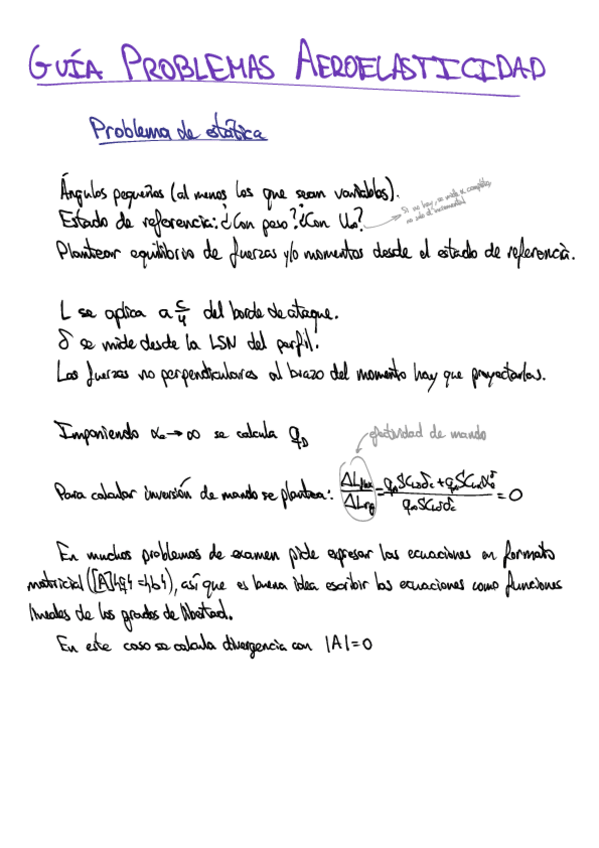 GUÍA PROBLEMAS AEROELASTICIDAD
Problema de estática
Ángulos pequeños (al menos los que sean variables).
Estado de referencia: ¿Con peso? ¿Con U∞?
Si no hay, se mide α completo,
no solo el incremental
Plantear equilibrio de fuerzas y/o momentos desde el estado de referencia.
L se aplica a c/4 del borde de ataque.
δ se mide desde la LSN del perfil.
Las fuerzas no perpendiculares al brazo del momento hay que proyectarlas.
Imponiendo α → ∞ se calcula q_D
efectividad de mando
Para calcular inversión de mando se plantea: ΔL_flex/ΔL_rig = = 0
En muchos problemas de examen pide expresar las ecuaciones en formato
matricial ([A]{q} = {b}), así que es buena idea escribir las ecuaciones como funciones
lineales de los grados de libertad.
En este caso se calcula divergencia con |A| = 0